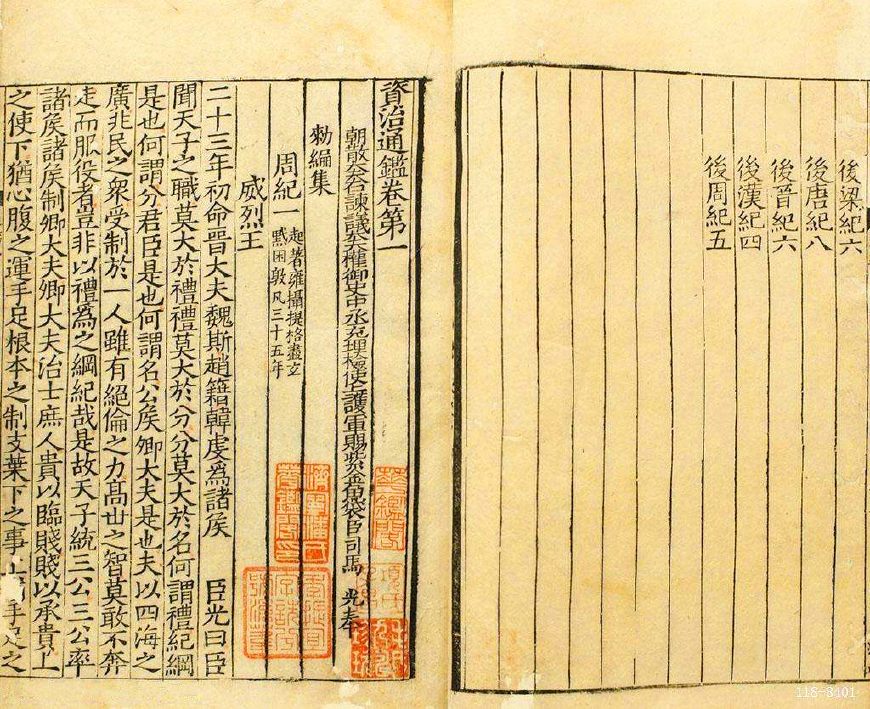 後梁紀六
後唐紀八
後晉紀六
後漢紀四
後周紀五
資治通鑑卷第一
朝散大夫右諫議大夫權御史中丞充理檢使上護軍賜紫金魚袋臣司馬光奉
勑編集
周紀一 起著雍攝提格盡玄黓困敦凡三十五年
威烈王
二十三年初命晉大夫魏斯趙籍韓虔為諸矦 臣光曰臣
聞天子之職莫大於禮禮莫大於分分莫大於名何謂禮紀綱
是也何謂分君臣是也何謂名公矦卿大夫是也夫以四海之
廣兆民之衆受制於一人雖有絕倫之力髙丗之智莫敢不奔
走而服役者豈非以禮為之綱紀哉是故天子統三公三公率
諸矦諸矦制卿大夫卿大夫治士庶人貴以臨賤賤以承貴上
之使下猶心腹之運手足根本之制支葉下之事上 手足之
116-8401